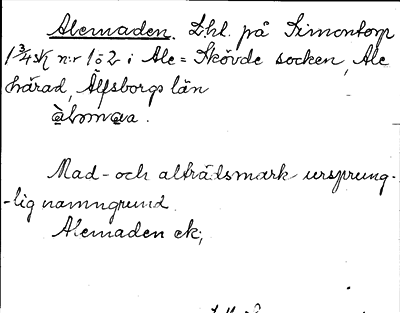 Alemaden. Lhl. på Simontorp
1 3/4 sk n:r 1 o 2 i Ale-Skövde socken, Ale
härad, Älfsborgs län
Mad- och alträdsmark ursprung-
-lig namngrund.
Alemaden ek;